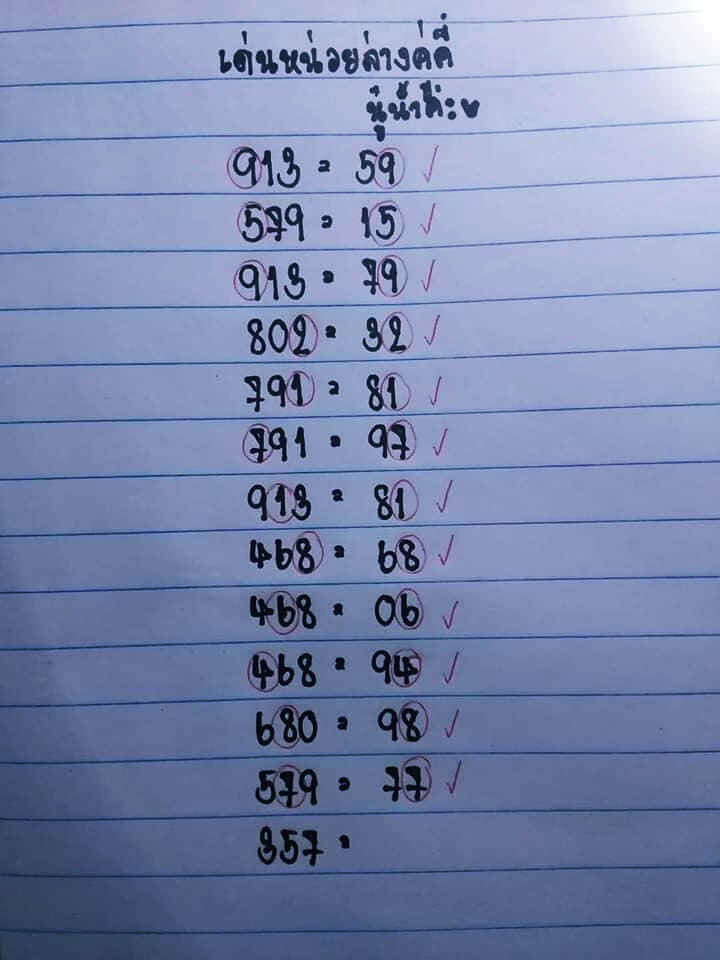 เด่นหน่วยล่างคู่คี่
นู๋น้ำค๊ะ
913 = 59 ✓
579 = 15 ✓
913 = 79 ✓
802 = 32 ✓
791 = 81 ✓
791 = 97 ✓
913 = 81 ✓
468 = 68 ✓
468 = 06 ✓
468 = 94 ✓
680 = 98 ✓
579 = 77 ✓
357 =